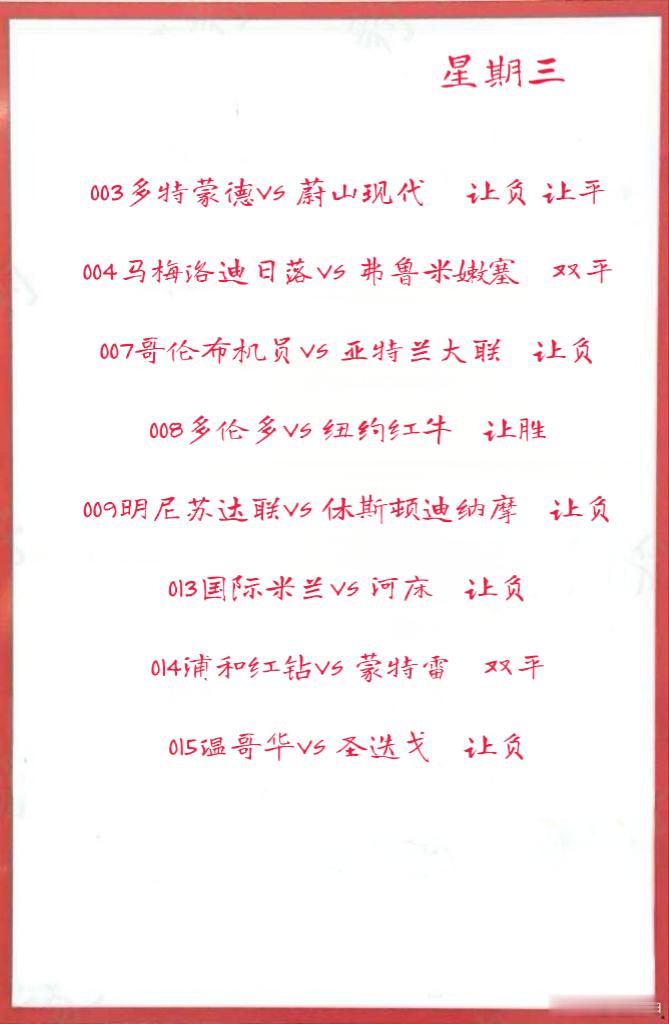 星期三
003多特蒙德vs 蔚山现代 让负 让平
004马梅洛迪日落vs 弗鲁米嫩塞 双平
007哥伦布机员vs 亚特兰大联 让负
008多伦多vs 纽约红牛 让胜
009明尼苏达联vs 休斯顿迪纳摩 让负
013国际米兰vs 河床 让负
014浦和红钻vs 蒙特雷 双平
015温哥华vs 圣迭戈 让负